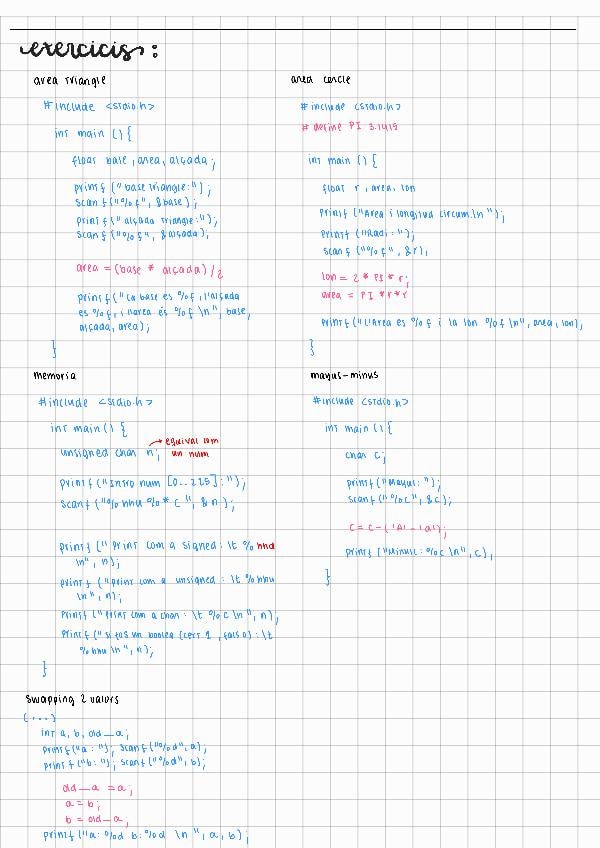 exercicis:
area triangle
#include <stdio.h>
int main () {
float base, area, alçada;
printf ("base triangle:");
scanf ("%f", &base);
printf ("alçada triangle:");
scanf ("%f", &alçada);
area = (base * alçada) / 2
printf ("La base es %f, l'alçada
es %f, i l'area és %f \n", base,
alçada, area);
}
area cercle
#include <stdio.h>
#define PI 3.1415
int main () {
float r, area, lon
printf ("Area i longitud circum.\n");
printf ("Radi:");
scanf ("%f", &r);
lon = 2 * PI * r;
area = PI * r * r
printf ("L'Area es %f i la lon %f \n", area, lon);
}
memoria
#include <stdio.h>
int main () {
unsigned char n; → equival com
un num
printf ("Intro num [0..225]:");
scanf ("%hhu %*c", &n);
printf ("Print com a signed: \t %hhd
\n", n);
printf ("print com a unsigned: \t %hhu
\n", n);
printf ("Print com a char: \t %c \n", n);
printf ("si fos un boolea (cert 1, fals 0): \t
%hhu \n", n);
}
mayus-minus
#include <stdio.h>
int main () {
char c;
printf ("Mayus: ");
scanf ("%c", &c);
c = c - ('A' - 'a');
printf ("Minus: %c \n", c);
}
Swapping 2 valors
(...)
int a, b, old_a;
printf ("a: "); scanf ("%d", a);
printf ("b: "); scanf ("%d", b);
old_a = a;
a = b;
b = old_a;
printf ("a: %d b: %d \n", a, b);